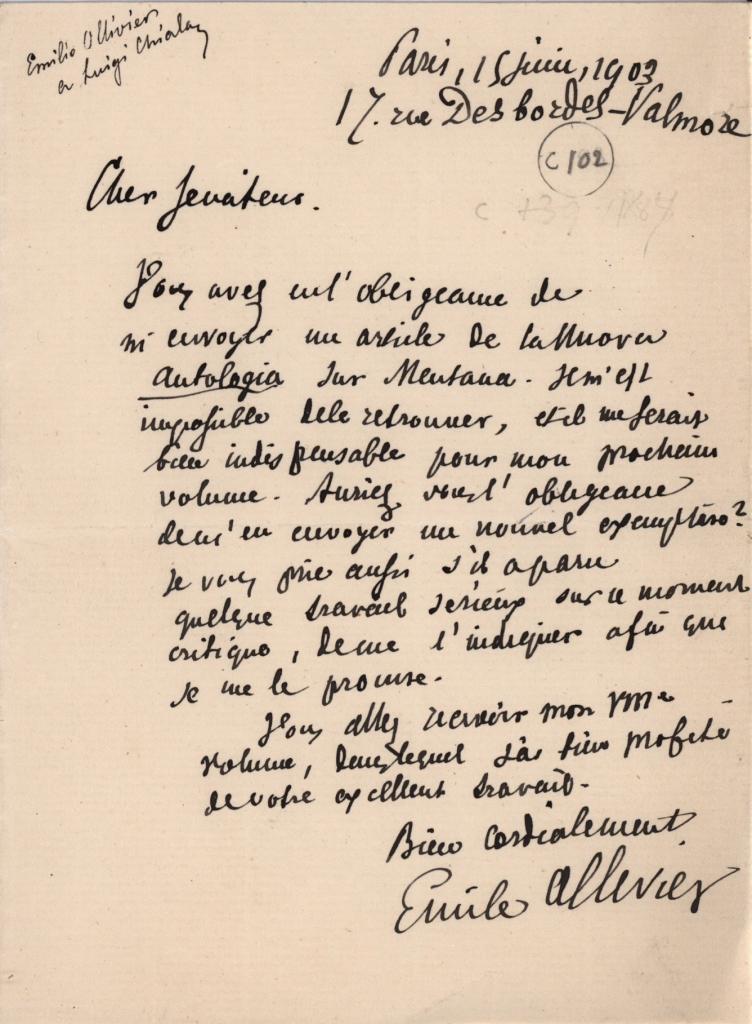 Emilio Ollivier
a Luigi Chiala
Paris, 15 juin, 1903
17. rue Desbordes-Valmore
C 102
Cher Senateur.
Vous avez eu l'obligeance de
m'envoyer un article de la Nuova
Antologia sur Mentana. Il m'est
impossible de le retrouver, et il me serait
bien indispensable pour mon prochain
volume. Auriez vous l'obligeance
de m'en envoyer un nouvel exemplaire?
Je vous prie aussi s'il a paru
quelque travail serieux sur ce moment
critique, de me l'indiquer afin que
je me le procure.
Vous allez recevoir mon
volume, dans lequel j'ai bien profité
de votre excellent travail.
Bien cordialement
Emile Ollivier